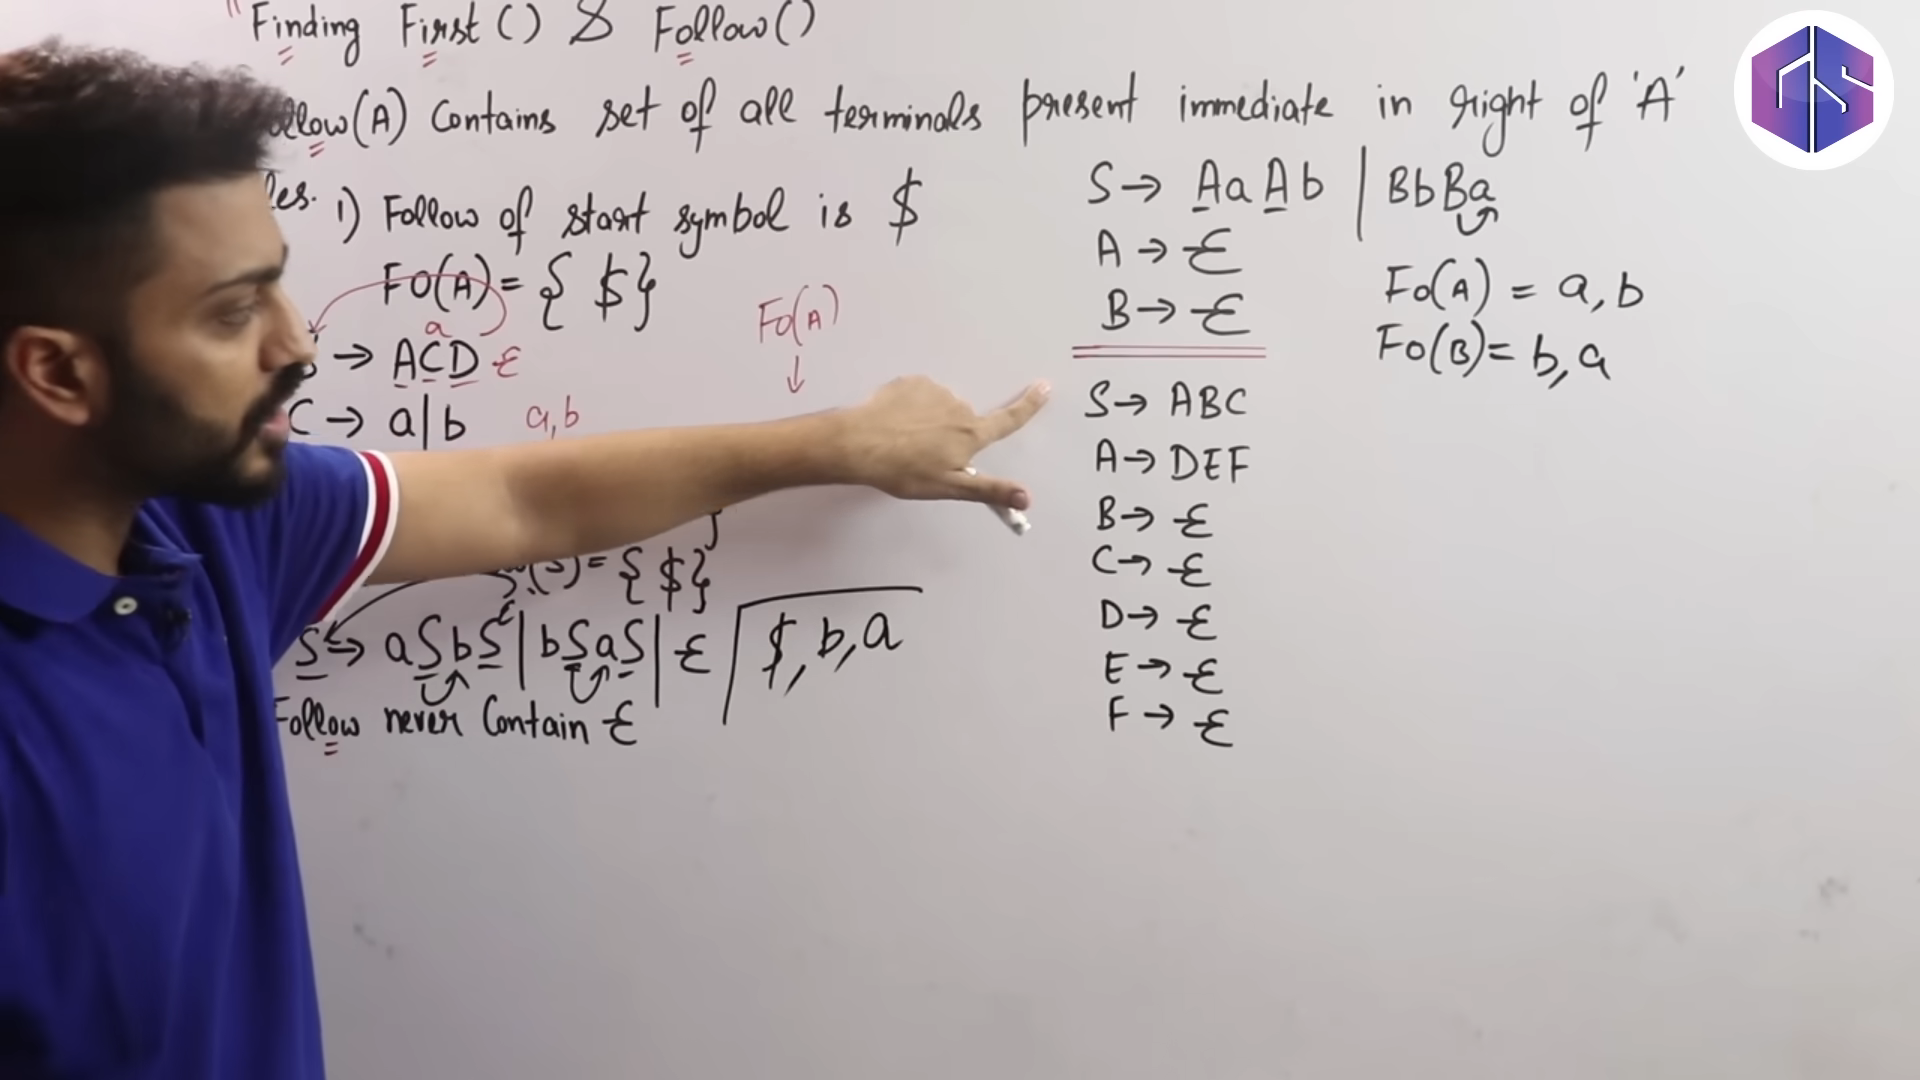 Finding First() & Follow()
ollow(A) Contains set of all terminals present immediate in right of 'A'
les. 1) Follow of start symbol is $
FO(A) = { $}
→ ACD ε
a
C → a|b a,b
Fo(A)
↓
(S) = {$}
S → aSbS|bSaS|ε
ε
$, b, a
Follow never Contain ε
S → AaAb | BbBa
A → ε
B → ε
Fo(A) = a, b
Fo(B) = b, a
S → ABC
A → DEF
B → ε
C → ε
D → ε
E → ε
F → ε